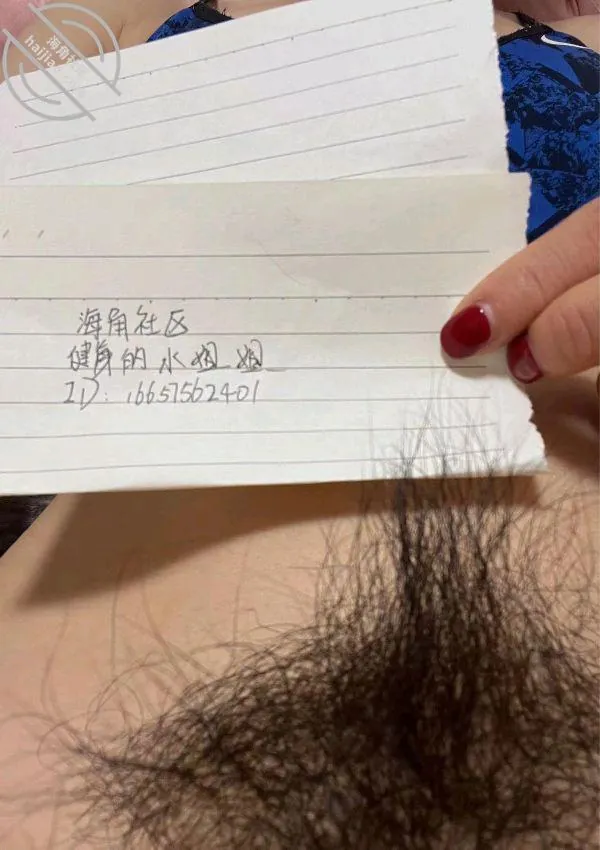 海角社区
haijia
海角社区
健身的水姐姐
ID: 16657562401